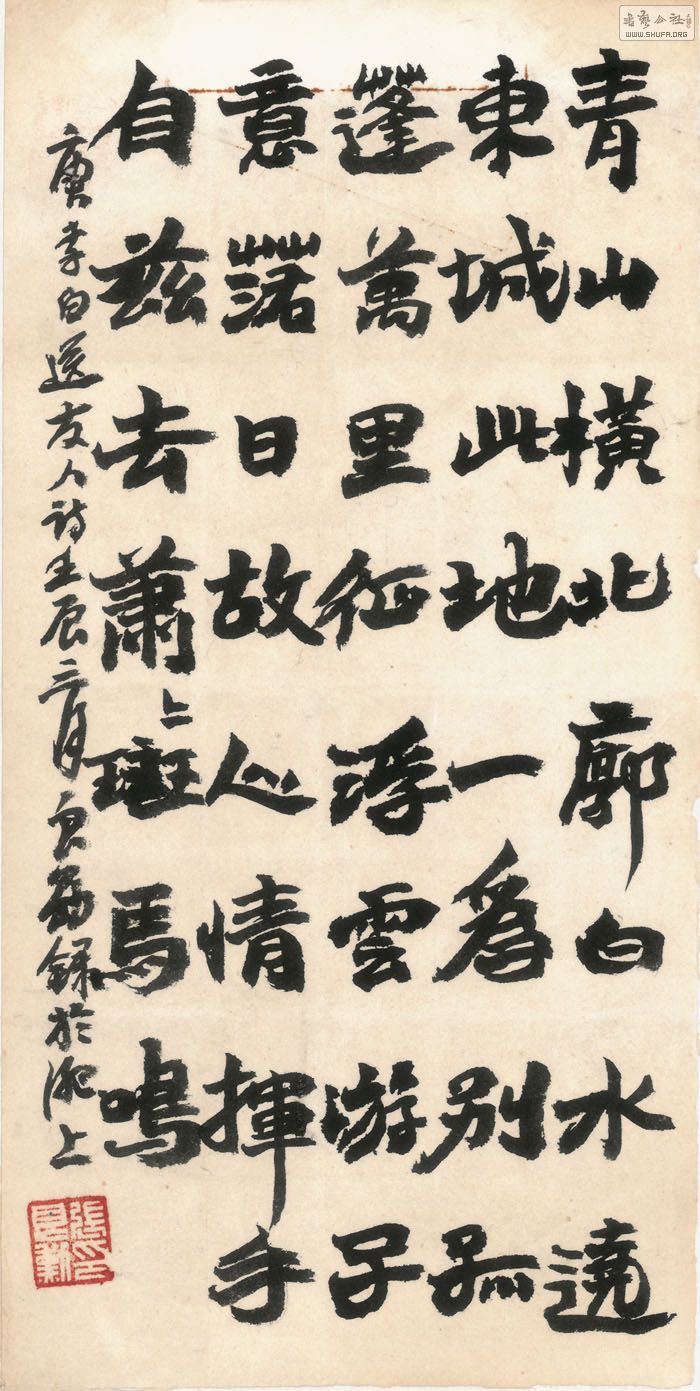 書藝公社
WWW.SHUFA.ORG
青山橫北廓白水遶
東城此地一爲別孤
蓬萬里征浮雲游子
意落日故人情揮手
自茲去蕭〻斑馬鳴
唐李白送友人詩壬辰三月良勛錄於淝上
張印良勳